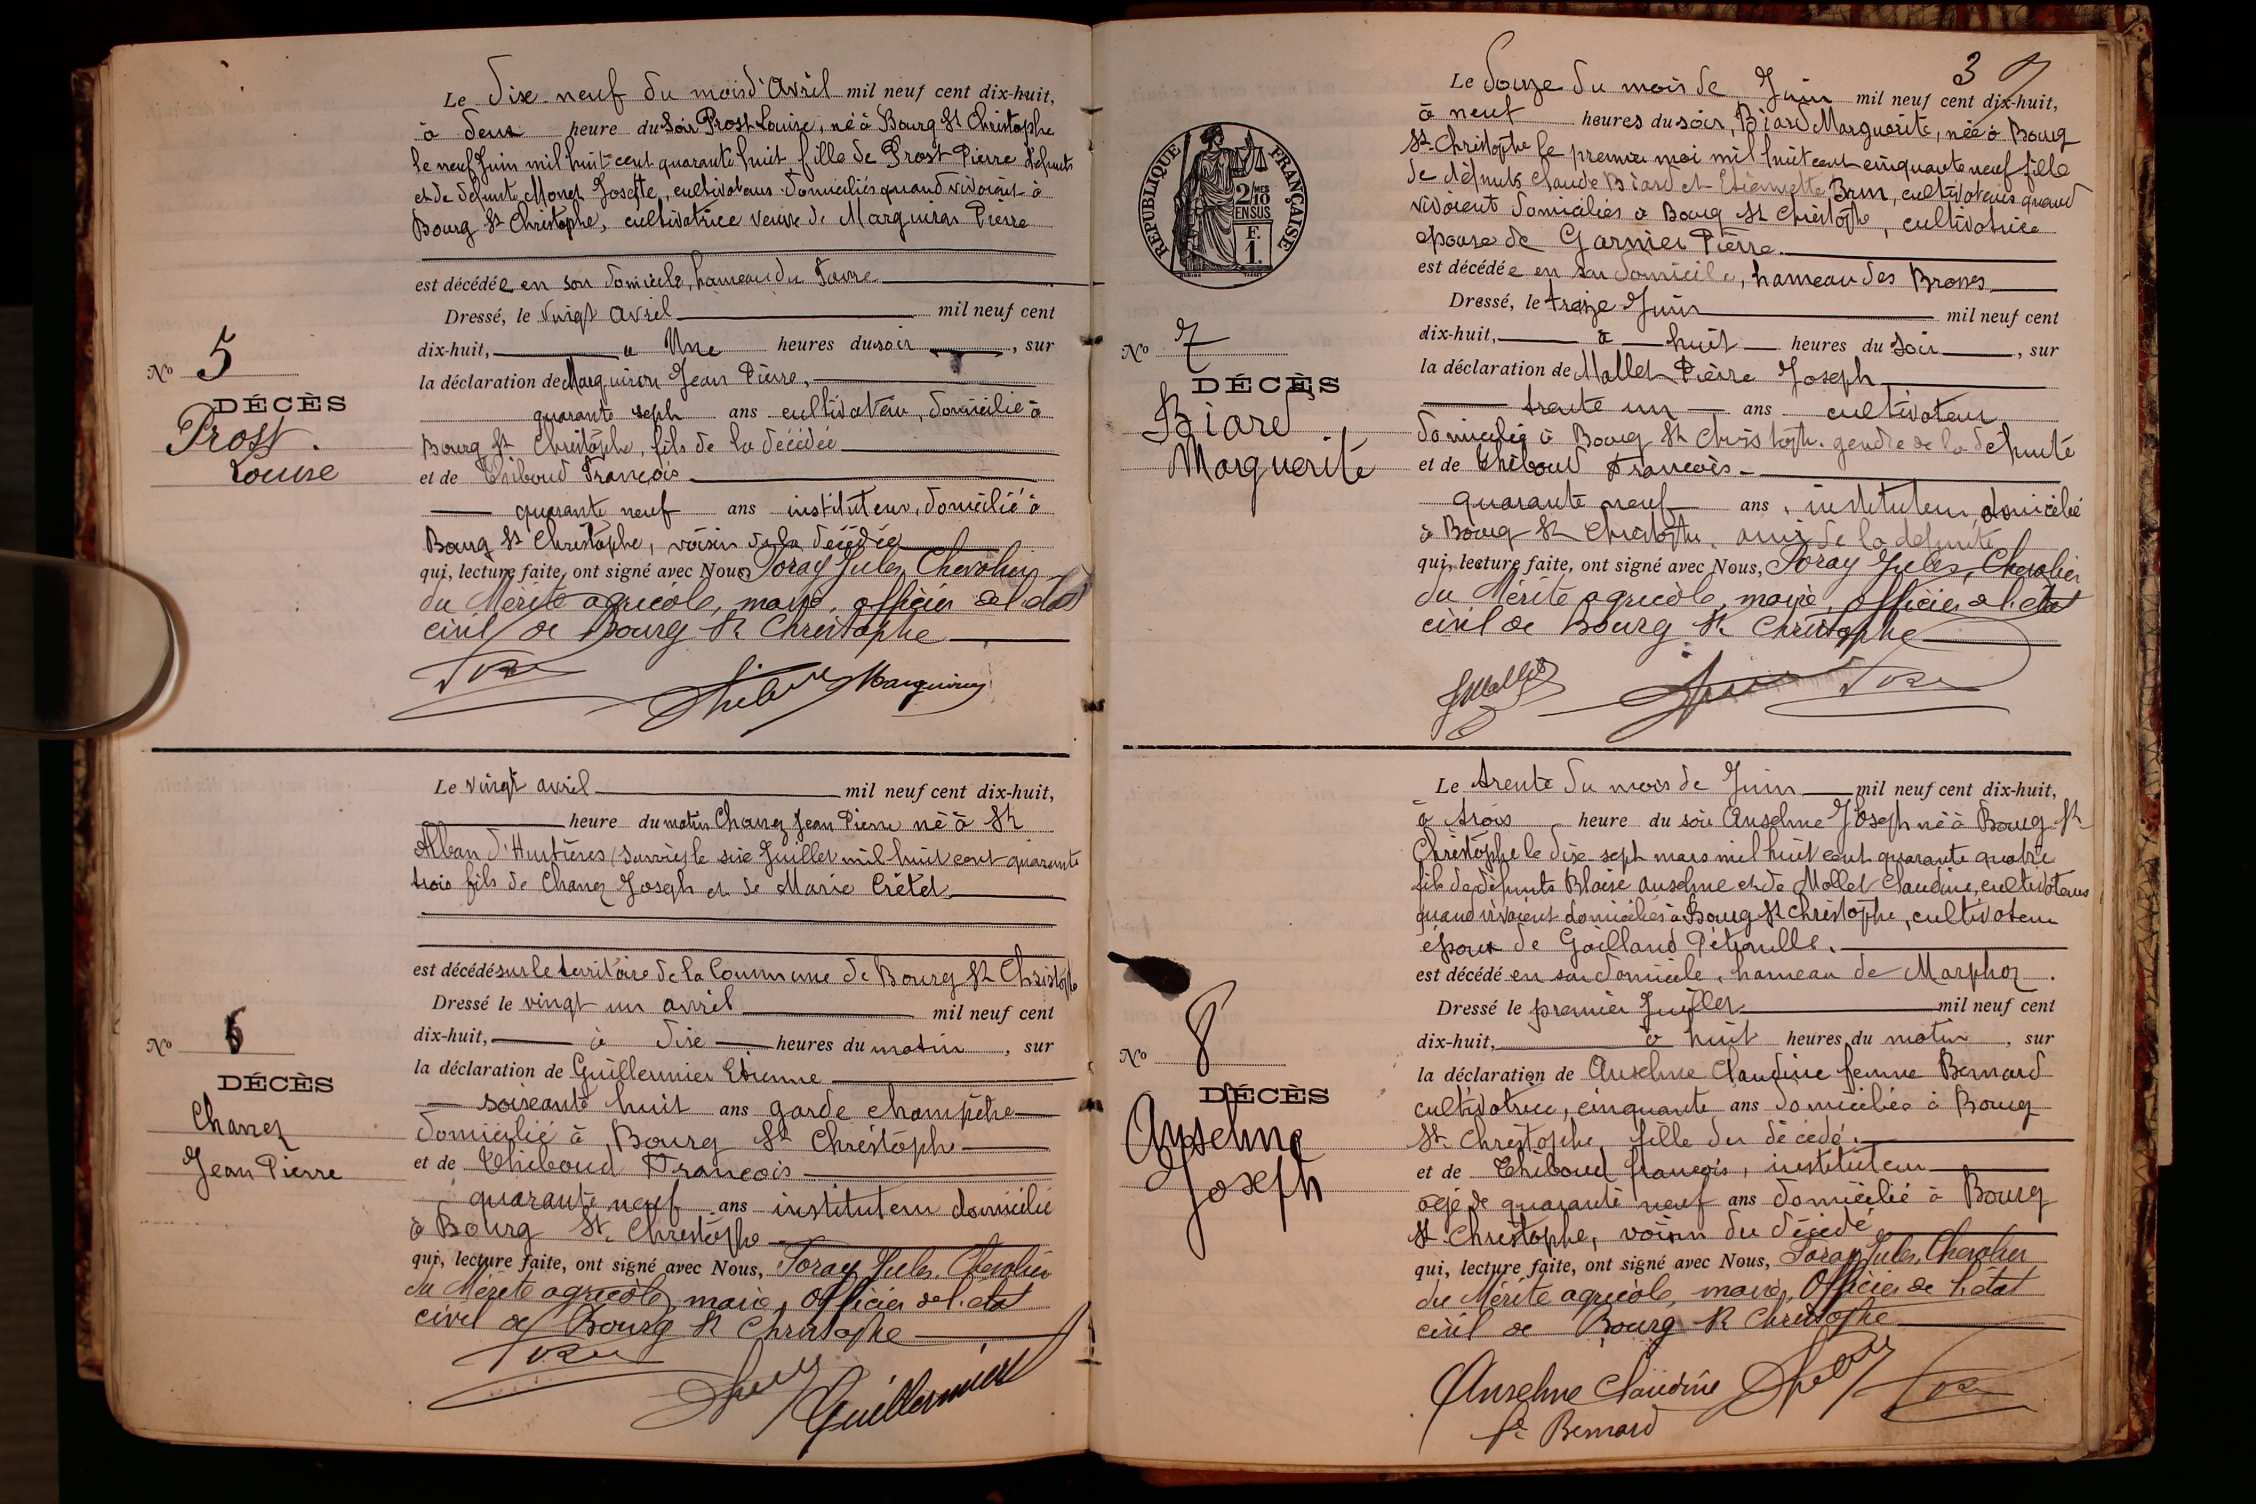 Le dix-neuf du mois d'avril mil neuf cent dix-huit,
à deux heure du soir Prost Louise, né à Bourg St Christophe
le neuf Juin mil huit cent quarante huit fille de Prost Pierre défunt
et de défunte Monet Josette, cultivateurs domiciliés quand vivaient à
Bourg St Christophe, cultivatrice veuve de Marguiron Pierre
est décédée en son domicile, hameau du Favre
Dressé, le vingt avril mil neuf cent
dix-huit, à Une heures du soir, sur
la déclaration de Marguiron Jean Pierre,
quarante sept ans cultivateur, domicilié à
Bourg St Christophe, fils de la décédée
et de Thiboud François
quarante neuf ans instituteur, domicilié à
Bourg St Christophe, voisin de la décédée
qui, lecture faite, ont signé avec Nous Foray Jules, Chevalier
du Mérite agricole, maire, officier de l'état
civil de Bourg St Christophe
Marguiron
No 5
DÉCÈS
Prost
Louise
Le vingt avril mil neuf cent dix-huit,
heure du matin Chanez Jean Pierre né à St
Alban d'Hurtières (Savoie) le six Juillet mil huit cent quarante
trois fils de Chanez Joseph et de Marie Crétet
est décédé sur le territoire de la Commune de Bourg St Christophe
Dressé le vingt un avril mil neuf cent
dix-huit, à dix heures du matin, sur
la déclaration de Guillermier Etienne
soixante huit ans garde champêtre
domicilié à Bourg St Christophe
et de Thiboud François
quarante neuf ans instituteur domicilié
à Bourg St Christophe
qui, lecture faite, ont signé avec Nous, Foray Jules, Chevalier
du Mérite agricole, maire, Officier de l'état
civil de Bourg St Christophe
Guillermier
No 6
DÉCÈS
Chanez
Jean Pierre
3
Le douze du mois de Juin mil neuf cent dix-huit,
à neuf heures du soir, Biard Marguerite, née à Bourg
St Christophe le premier mai mil huit cent cinquante neuf fille
de défunts Claude Biard et Etiennette Brun, cultivateurs quand
vivaient domiciliés à Bourg St Christophe, cultivatrice
épouse de Garnier Pierre
est décédée en son domicile, hameau des Brosses
Dressé, le treize Juin mil neuf cent
dix-huit, à huit heures du soir, sur
la déclaration de Mollet Pierre Joseph
trente un ans cultivateur
domicilié à Bourg St Christophe gendre de la défunte
et de Thiboud François
quarante neuf ans, instituteur, domicilié
à Bourg St Christophe, ami de la défunte
qui, lecture faite, ont signé avec Nous, Foray Jules, Chevalier
du Mérite agricole, maire, officier de l'état
civil de Bourg St Christophe
RÉPUBLIQUE FRANÇAISE
2/10
EN SUS
F.
1.
No 7
DÉCÈS
Biard
Marguerite
Le trente du mois de Juin mil neuf cent dix-huit,
à trois heure du soir Anselme Joseph né à Bourg St
Christophe le dix-sept mars mil huit cent quarante quatre
fils de défunts Blaise Anselme et de Mollet Claudine, cultivateurs
quand vivaient domiciliés à Bourg St Christophe, cultivateur
époux de Gailland Pétronille.
est décédé en son domicile, hameau de Marphoz.
Dressé le premier Juillet mil neuf cent
dix-huit, à huit heures du matin, sur
la déclaration de Anselme Claudine femme Bernard
cultivatrice, cinquante ans domiciliée à Bourg
St Christophe, fille du décédé.
et de Thiboud françois, instituteur
âgé de quarante neuf ans domicilié à Bourg
St Christophe, voisin du décédé
qui, lecture faite, ont signé avec Nous, Foray Jules, Chevalier
du Mérite agricole, maire, Officier de l'état
civil de Bourg St Christophe
Anselme Claudine
fe Bernard
No 8
DÉCÈS
Anselme
Joseph